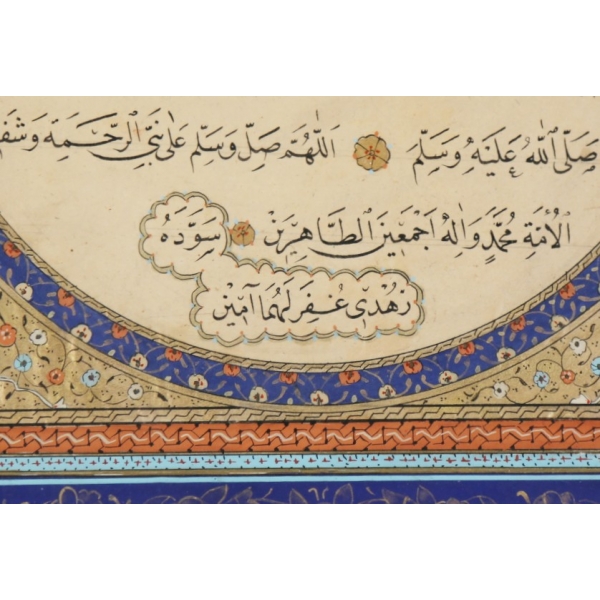 صَلَّى اللهُ عَلَيْهِ وَسَلَّمَ اَللّٰهُمَّ صَلِّ وَسَلِّمْ عَلٰى نَبِيِّ الرَّحْمَةِ وَشَفِ
الْاُمَّةِ مُحَمَّدٍ وَاٰلِهِ اَجْمَعِينَ الطَّاهِرِينَ سَوَّدَهُ
زُهْدِي غُفِرَ لَهُمَا آمِين